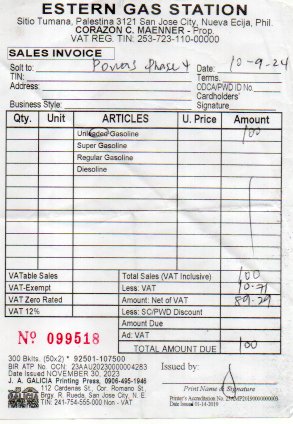 ESTERN GAS STATION
Sitio Tumana, Palestina 3121 San Jose City, Nueva Ecija, Phil.
CORAZON C. MAENNER - Prop.
VAT REG. TIN: 253-723-110-00000
SALES INVOICE
Solt to: Phase 4 Date: 10-9-24
TIN: Terms.
Address: OSCA/PWD ID No
Cardholders'
Business Style: Signature
Qty. Unit ARTICLES U. Price Amount
Unleaded Gasoline 100
Super Gasoline
Regular Gasoline
Diesoline
VATable Sales Total Sales (VAT Inclusive) 100
VAT-Exempt Less: VAT 10.71
VAT Zero Rated Amount: Net of VAT 89.29
VAT 12% Less: SC/PWD Discount
Amount Due
Ad: VAT
TOTAL AMOUNT DUE 100
Nº 099518
300 Bklts. (50x2) * 92501-107500
BIR ATP No. OCN: 23AAU20230000004283
Date issued NOVEMBER 30, 2023
J. A. GALICIA Printing Press, 0906-495-1946
112 Cardenas St., Cor. Romano St.
Brgy. R. Rueda, San Jose City, N. E.
TIN: 241-754-555-000 Non - VAT
Issued by:
Print Name & Signature
Printer's Accreditation No.
Date Issued 01-14-2019